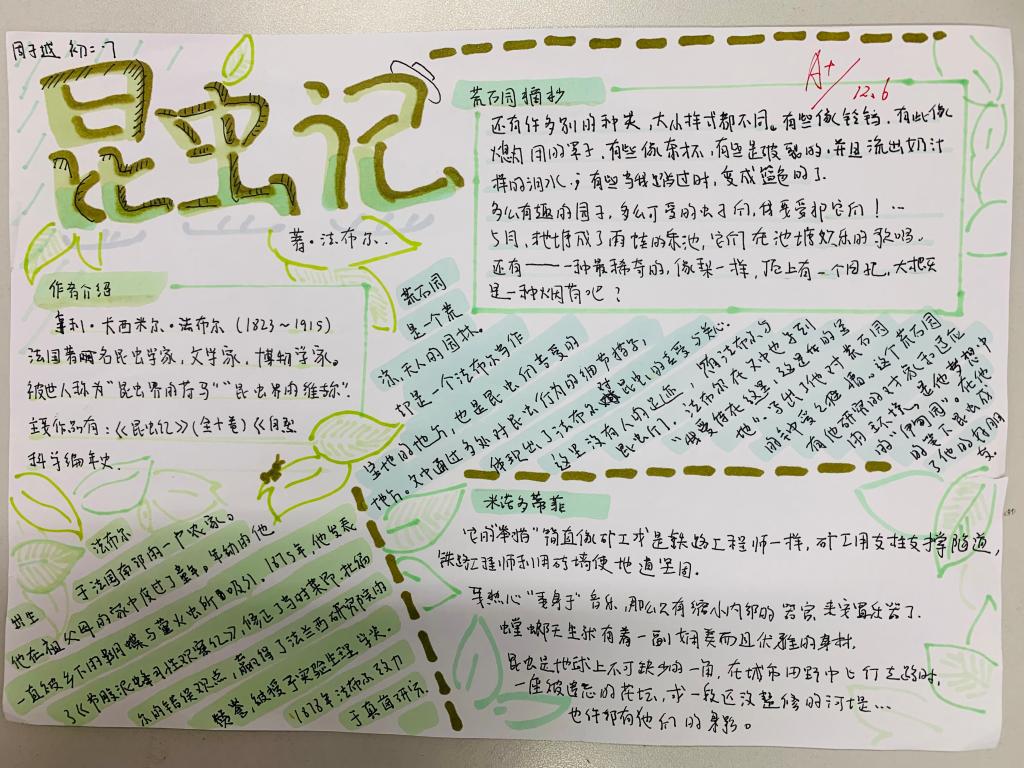 周子越 初二7
昆虫记
著·法布尔
A+
12.6
作者介绍
亨利·卡西米尔·法布尔（1823~1915）
法国著名昆虫学家，文学家，博物学家。
被世人称为“昆虫界的荷马”“昆虫界的维吉尔”.
主要作品有：《昆虫记》(全十卷)《自然
科学编年史.
荒石园摘抄
还有许多别的种类，大小样式都不同。有些像铃铛，有些像
灯罩子，有些像茶杯，有些是破裂的，并且流出奶汁
样的泪水，；有些当我踏过时，变成蓝色的了
多么有趣的园子，多么可爱的虫子们，我要爱那它们！…
5月，池塘成了两蛙的乐池，它们在池塘欢乐的歌唱。
还有——一种最稀奇的，像梨一样，顶上有一个圆孔，大抵
是一种烟筒吧？
荒石园
是一个荒
凉，无人的园林。
却是一个法布尔当作
圣地的地方，也是昆虫们喜爱的
地方。文中通过多处对昆虫行为的细节描写，
体现出了法布尔对昆虫的喜爱与关心.
这里没有人的足迹，随法布尔与
昆虫们，法布尔在文中也写到
“我要住在这里，这是我的圣
地”，写出了他对荒石园
的钟爱之情。这个荒石园
有他研究的对象和适应
用环境，是他梦想中
的“伊甸园”。在他
的笔下昆虫成
了他的好朋
友.
法布尔
出生于法国南部的一户农家。
他在祖父母的家中度过了童年。年幼的他
一直被乡下的蝴蝶与萤火虫所吸引，1875年，他发表
了《节腹泥蜂习性观察记》，修正了当时
尔的错误观点，赢得了法兰西研究院的
赞誉，被授予实验生理学奖.
1878年法布尔致力
于真菌研究.
米诺多蒂菲
它的“举措”简直像矿工或是铁路工程师一样，矿工用支柱支撑隧道，
铁路工程师利用砖墙使地道坚固.
音乐，那么只有缩小内部的器官来安置了.
螳螂天生就有着一副娴美而且优雅的身材.
昆虫是地球上不可缺少的一角，在城市田野中飞行走路时，
一座被遗忘的花坛，或一段还没整修的河堤…
也许都有他们的身影。